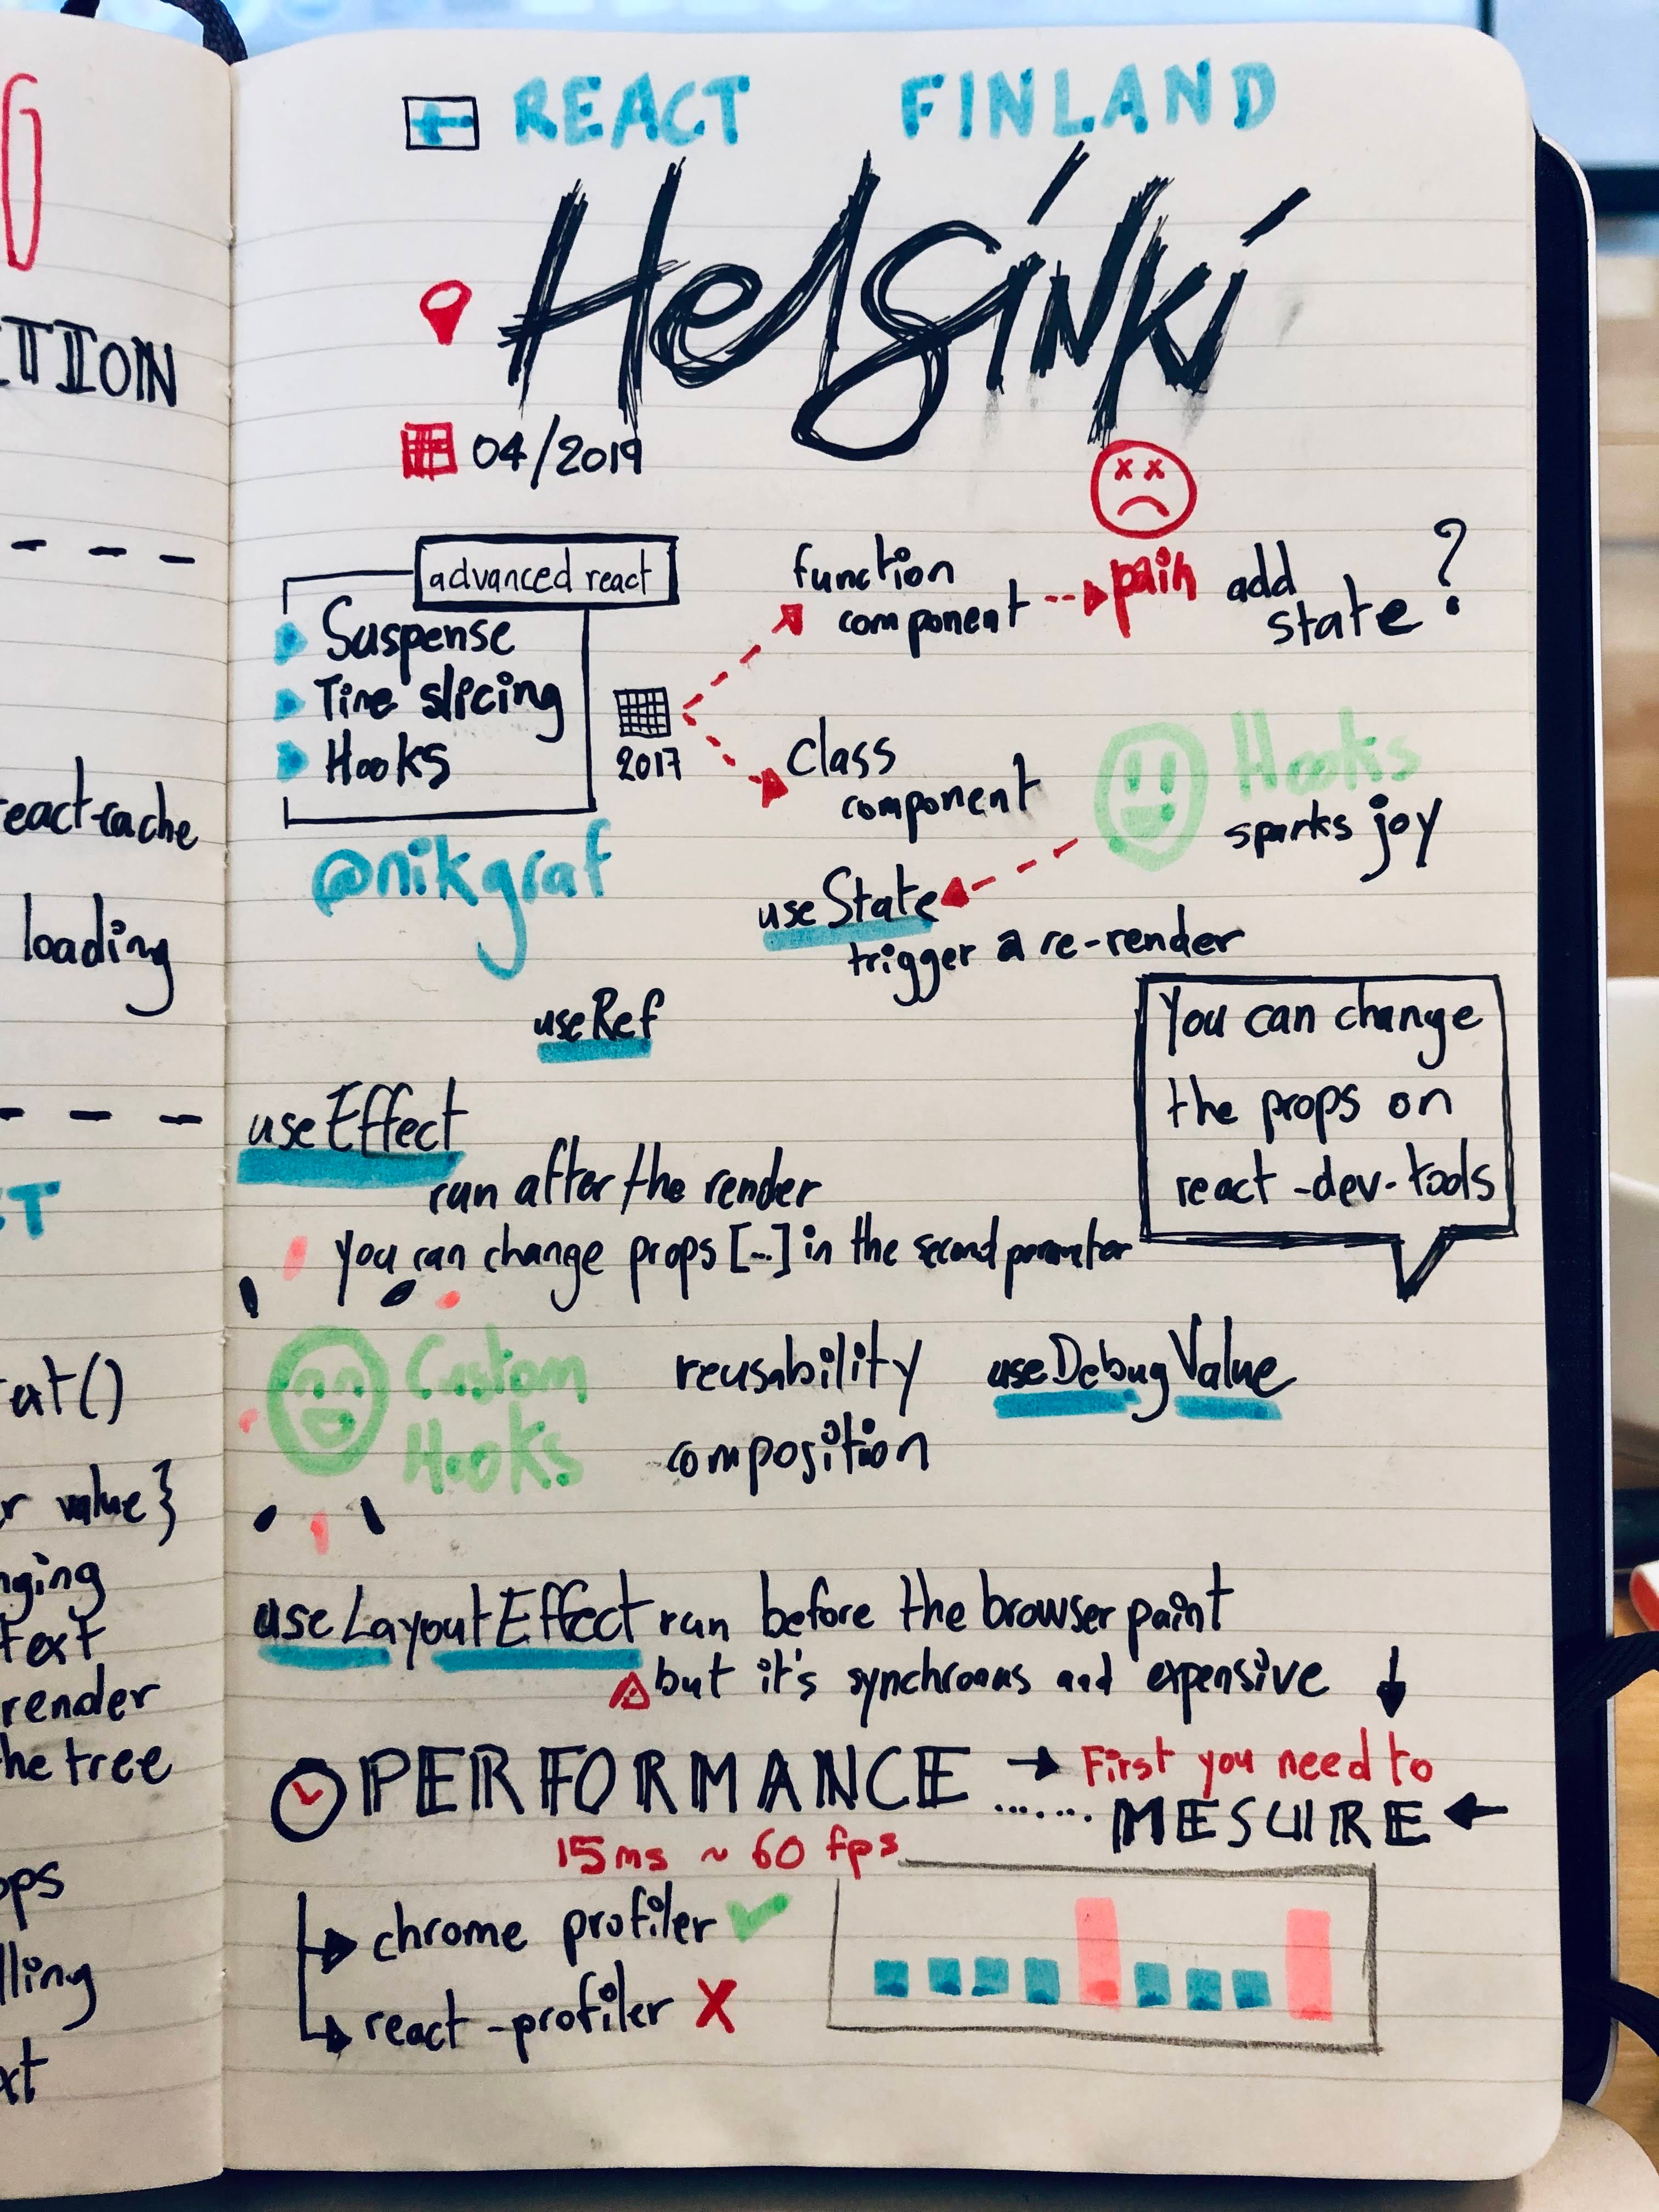 G
TION
eact-cache
loading
ST
ext()
r value}
nging
text
render
he tree
ops
lling
xt
REACT FINLAND
Helsinki
04/2019
advanced react
Suspense
Time slicing
Hooks
@nikgraf
2017
function
component
pain
add
state?
class
component
Hooks
sparks joy
useState
trigger a re-render
useRef
You can change
the props on
react-dev-tools
useEffect
run after the render
you can change props [...] in the second
Custom
Hooks
reusability
composition
useDebugValue
useLayoutEffect run before the browser paint
but it's and expensive
PERFORMANCE
First you need to
MESURE
15ms ~ 60 fps
chrome profiler
react-profiler X